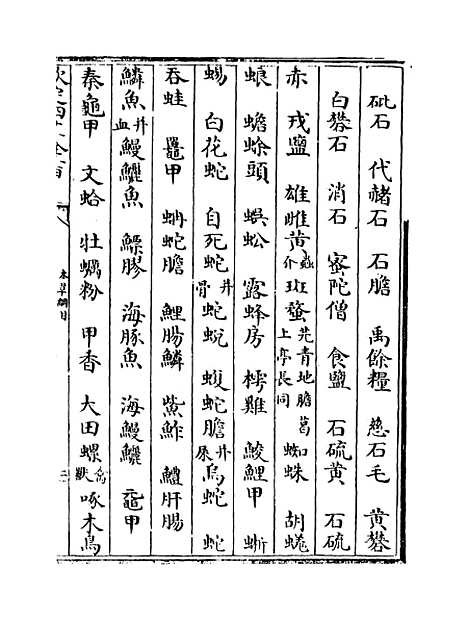 砒石　代赭石　石膽　禹餘糧　慈石毛　黄礬
白礬石　消石　蜜陀僧　食鹽　石硫黄　石硫
赤　戎鹽　雄雌黄　蟲介　斑蝥　芫青地膽葛上亭長同　蜘蛛　胡蜣
蜋　蟾蜍頭　蜈蚣　露蜂房　樗雞　鯪鯉甲　蜥
蜴　白花蛇　自死蛇　并骨　蛇蜕　蝮蛇膽　并屎　烏蛇　蛇
吞蛙　鼉甲　蚺蛇膽　鯉腸鱗　鮆鮓　鱧肝腸
鱗魚　并血　鰻鱺魚　鰾膠　海豚魚　海鰻鱺　黿甲
秦龜甲　文蛤　牡蠣粉　甲香　大田螺　禽獸　啄木鳥
本草綱目